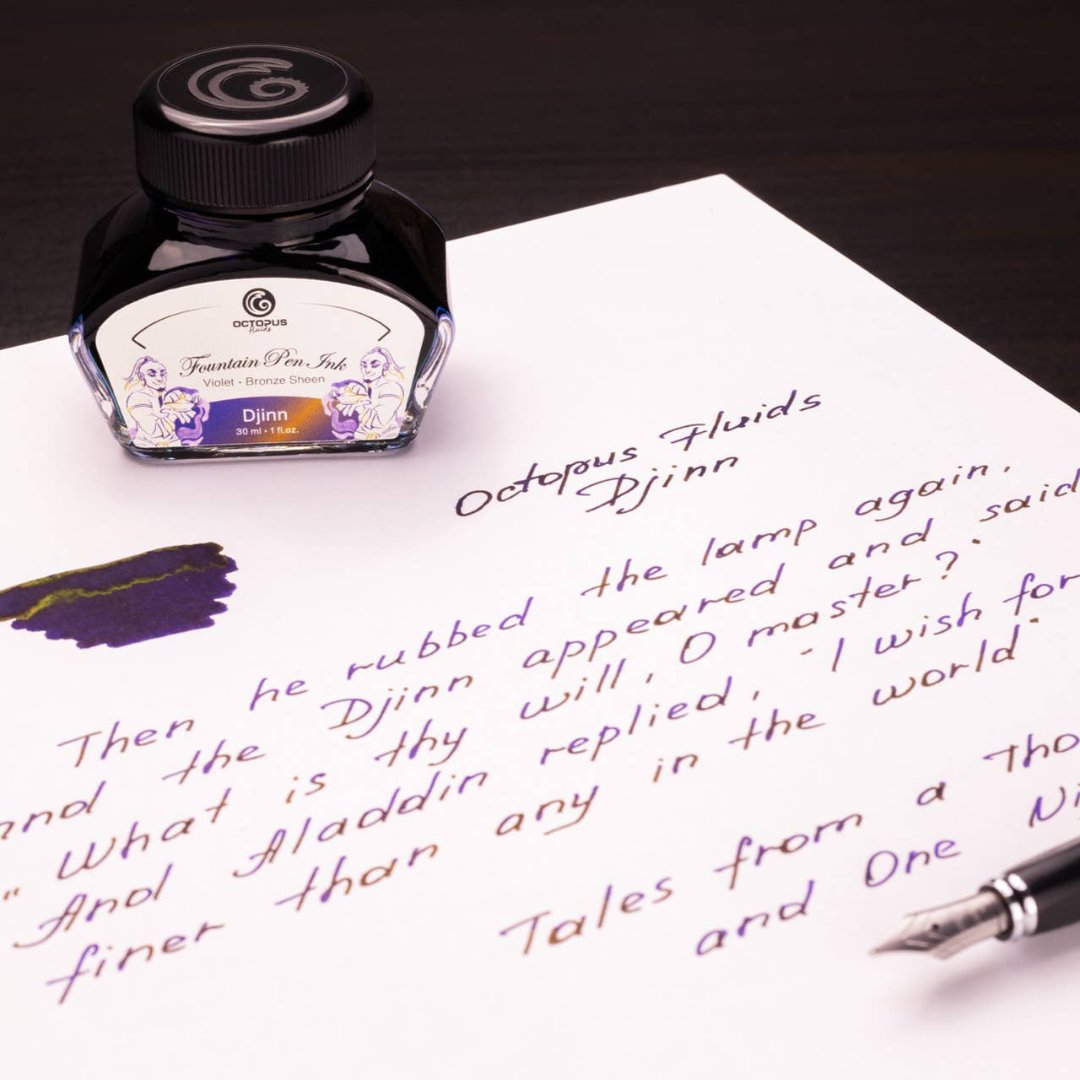 OCTOPUS
fluids
Fountain Pen Ink
Violet • Bronze Sheen
Djinn
30 ml • 1 fl.oz.
Octopus Fluids
Djinn
Then he rubbed the lamp again,
and the Djinn appeared and said
"What is thy will, O master?"
And Aladdin replied, "I wish for
finer than any in the world"
Tales from a Tho
and One Ni